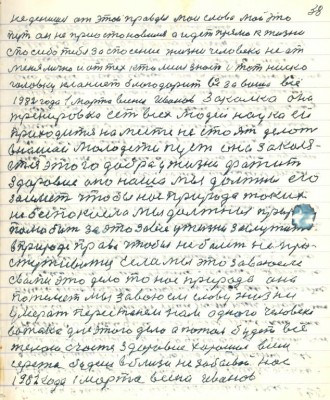 38
не денция от этой правды мои слова мой это
путь он не приостановим а идет прямо к жизни
спосибо тебя за спосение жизни человека не от
меня лично и от тех кто меня знает и тот низко
головку кланяет благодарит вас за вше все
1982 года 1 марта весна Иванов Закалка она
тренировка сеть всех людей наука ей
приходится на месте не стоять делать
нашей молодежи путь она закаля
ется этого добра у жизни хватит
здоровие оно наше мы должны его
занимет чтобы нас природа таких
не беспокоила мы должны природ
полюбить за это дело у жизни заслужить
в природе права чтобы не болеть не про
стуживаться силами это завоюем
своими это дело то нас природа она
поможет мы завоюем славу жизни
умирать перестанем нам одного человека
для этого дело а потом будет все
тело счастя здоровие хорошия всем
сережа будеш вблизи не забывай нас
1982 года 1 марта весна Иванов